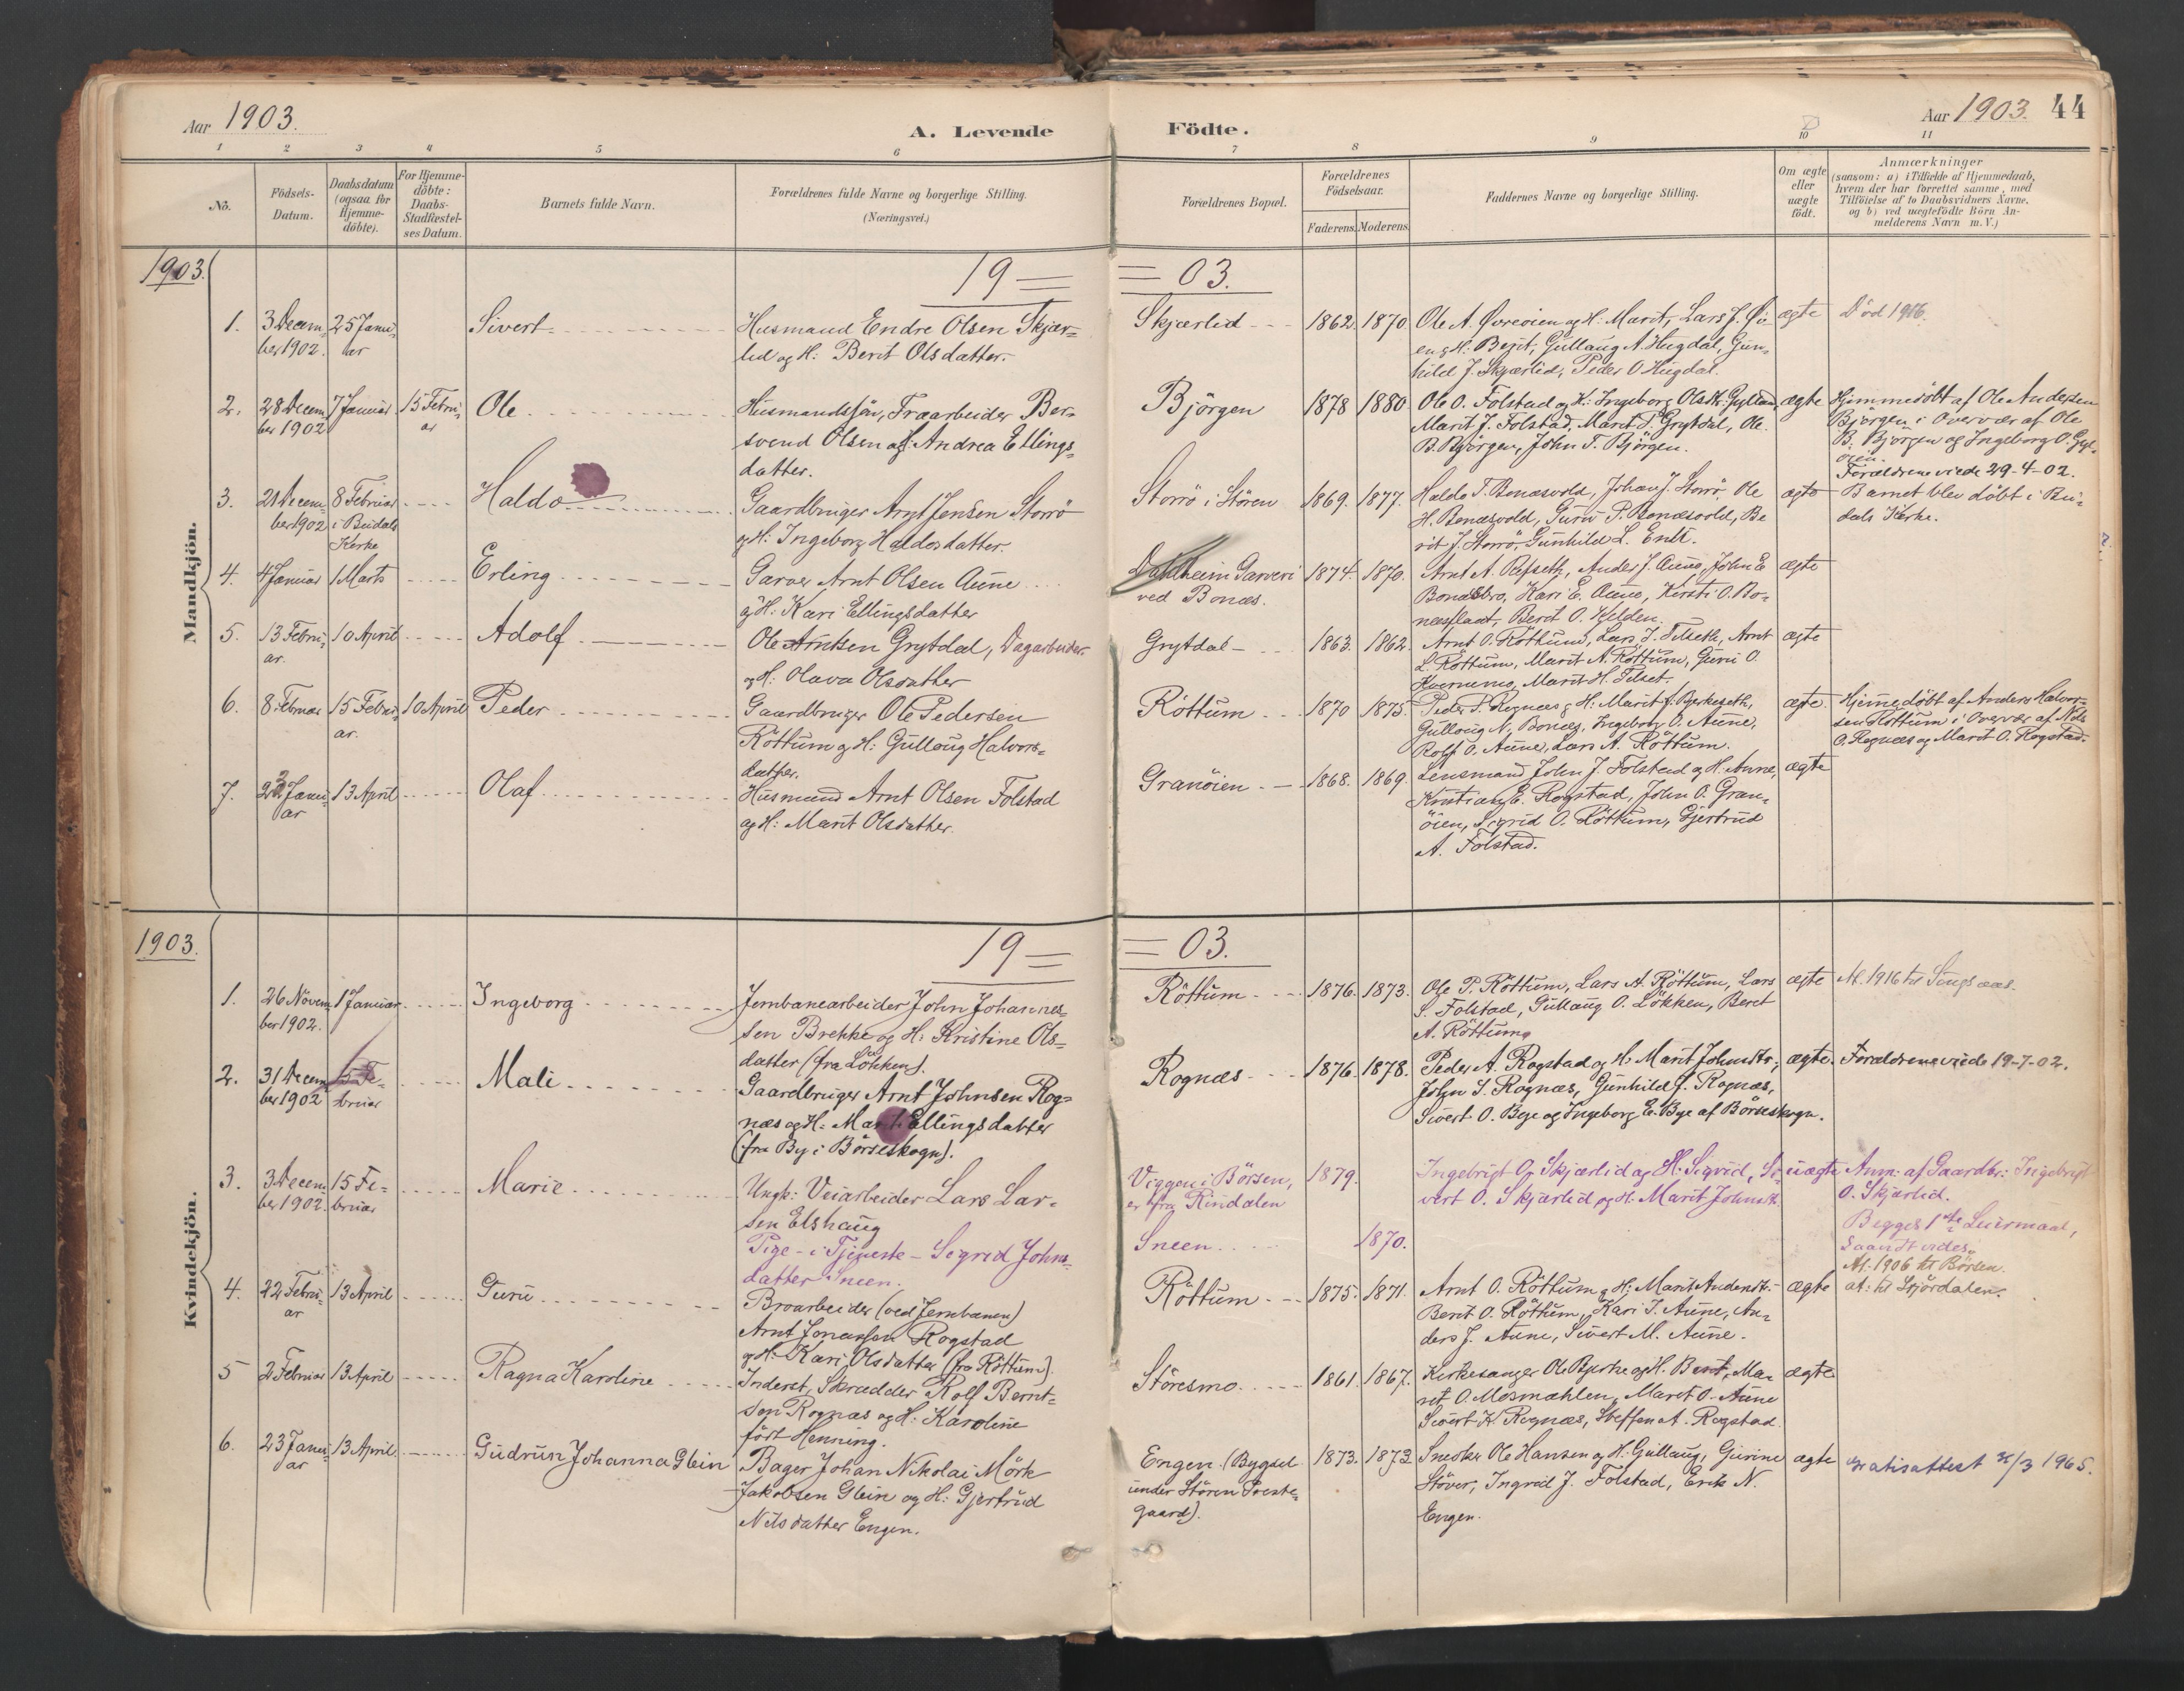 Aar 1903.
A. Levende Födte.
Aar 1903. 44
1 2 3 4 5 6 7 8 9 10 11
No.
Födsels-
Datum.
Daabsdatum
(ogsaa for
Hjemme-
döbte).
For Hjemme-
döbte:
Daabs-
Stadfæstel-
ses Datum.
Barnets fulde Navn.
Forældrenes fulde Navne og borgerlige Stilling.
(Næringsvei.)
Forældrenes Bopæl.
Forældrenes
Födselsaar.
Faderens. Moderens.
Faddernes Navne og borgerlige Stilling.
Om ægte
eller
uægte
födt.
Anmærkninger
(saasom: a) i Tilfælde af Hjemmedaab,
hvem der har forrettet samme, med
Tilföielse af to Daabsvidners Navne,
og b) ved uægtefödte Börn An-
melderens Navn m. V.)
Mandkjön.
1903.
19 = = 03.
1.
3 Decem-
ber 1902.
25 Janu-
ar
Sivert
Husmand Endre Olsen Skjær-
lid og H: Berit Olsdatter.
Skjærlid
1862. 1870
Ole A. Øvreøien og H: Marit, Lars J. Øi-
en og H: Berit, Gullaug A. Hugdal, Gun-
hild J. Skjærlid, Peder O Hugdal.
ægte
Død 1916.
2.
28 Decem-
ber 1902
7 Januar
15 Febru-
ar
Ole
Husmandssön, Træarbeider Ber-
svend Olsen og H: Andrea Ellings-
datter.
Björgen
1878 1880
Ole O. Folstad og H: Ingeborg Olsdtr.
Marit J. Folstad, Marit P. Grytdal, Ole
B. Björgen, John T. Björgen.
ægte
Hjemmedöbt af Ole Andersen
Björgen i Overvær af Ole
B. Björgen og Ingeborg O.
Forældrene viede 29-4-02.
3.
21 Decem-
ber 1902
8 Februar
i Budals
Kirke
Haldo
Gaardbruger Arnt Jensen Storrö
og H: Ingeborg Haldosdatter.
Storrö i Stören
1869. 1877.
Haldo T. Bonæsvold, Johan J. Storrö, Ole
H. Bonæsvold, Guru P. Bonæsvold, Be
rit J. Storrö, Gunhild L. Enlı.
ægte
Barnet blev döbt i Bu-
dals Kirke.
4.
4 Januar
1 Marts
Erling
Garver Arnt Olsen Aune
og H: Kari Ellingsdatter
Dahlheim Garveri
ved Bonæs.
1874. 1870.
Arnt A. Refseth, Anders J. Aune, John E
Bonæsbro, Kari E. Aune, Kirsti O. Bo-
næsflaat, Berit O. Helden.
ægte
5.
13 Febru-
ar.
10 April
Adolf
Ole Arntsen Grytdal, Dagarbeider.
og H: Olava Olsdatter
Grytdal
1863. 1862.
Arnt O. Röttum, Lars J. Folseth, Arnt
L. Röttum, Marit A. Röttum, Guri O.
Kvernmo, Marit H. Folset.
ægte
6.
8 Februar
15 Febru-
ar.
10 April
Peder
Gaardbruger Ole Pedersen
Röttum og H: Gullaug Halvors-
datter.
Röttum
1870 1875.
Peder P. Rognæs og H: Marit J. Bjerkeseth,
Gullaug A. Bonæs, Ingeborg O. Aune,
Rolf O. Aune, Lars A. Röttum.
ægte.
Hjemmedöbt af Anders Halvor-
sen Röttum i Overvær af Nils
O. Rognæs og Marit O. Rogstad.
7.
23 Janu-
ar
13 April
Olaf
Husmand Arnt Olsen Folstad
og H: Marit Olsdatter.
Granöien
1868. 1869
Lensmand John J. Folstad og H. Anne,
Kristian E. Rogstad, John O. Gran-
öien, Sigrid O. Röttum, Gjertrud
A. Folstad.
ægte
Kvindekjön.
1903.
19 = = 03.
1.
26 Novem-
ber 1902.
1 Januar
Ingeborg
Jernbanearbeider John Johannes-
sen Brekke og H: Kristine Ols-
datter (fra Lökken).
Röttum
1876. 1873.
Ole P. Röttum, Lars A. Röttum, Lars
S. Folstad, Gullaug O. Lökken, Beret
A. Röttum.
ægte
At. 1916 til Singsaas.
2.
31 Decem-
ber 1902
15 Fe-
bruar
Mali
Gaardbruger Arnt Johnsen Rog-
næs og H: Marit Ellingsdatter
(fra By i Börseskogn).
Rognæs
1876. 1878.
Peder A. Rogstad og H: Marit Johnsdtr.,
John S. Rognæs, Gunhild J. Rognæs,
Sivert O. Bye og Ingeborg E. Bye af Börseskogn.
ægte.
Forældrene viede 19-7-02.
3.
3 Decem-
ber 1902.
15 Fe-
bruar
Marie
Ungk: Veiarbeider Lars Lar-
sen Elshaug
Pige - i Tjeneste - Sigrid Johns-
datter Sneen.
Viggen i Börsen,
er fra Rindalen
Sneen
1879.
1870.
Ingebrigt O. Skjærlid og H: Sigrid, Si-
vert O. Skjærlid og H: Marit Johnsdt.
uægte
Anm: af Gaardbr: Ingebrigt
O. Skjærlid.
Begges 1ste Leiermaal,
saavidt vides.
At. 1906 til Börsen.
4.
22 Febru-
ar
13 April
Guru
Broarbeider (ved Jernbanen)
Arnt Jonassen Rogstad
og H: Kari Olsdatter (fra Röttum).
Röttum
1875. 1871.
Arnt O. Röttum og H: Marit Andersdtr.
Berit O. Röttum, Kari J. Aune, An-
ders J. Aune, Sivert M. Aune.
ægte
at: til Stjördalen.
5
2 Februar
13 April
Ragna Karoline
Inderst, Skrædder Rolf Bernt-
sen Rognæs og H: Karoline
födt Henning.
Störesmo.
1861. 1867.
Kirkesanger Ole Bjerke og H. Berit, Ma-
rit O. Mosmæhlen, Marit O. Aune
Sivert K. Rognæs, Steffen A. Rogstad.
ægte
6.
23 Janu-
ar
13 April.
Gudrun Johanna Glein
Bager Johan Nikolai Mörk
Jakobsen Glein og H: Gjertrud
Nilsdatter Engen.
Engen. (Bygsel
under Stören Preste-
gaard).
1873. 1873.
Snedker Ole Hansen og H. Gullaug, Gurine
Stöver, Ingrid J. Folstad, Erik N.
Engen.
ægte
Gratisattest /3 1965.